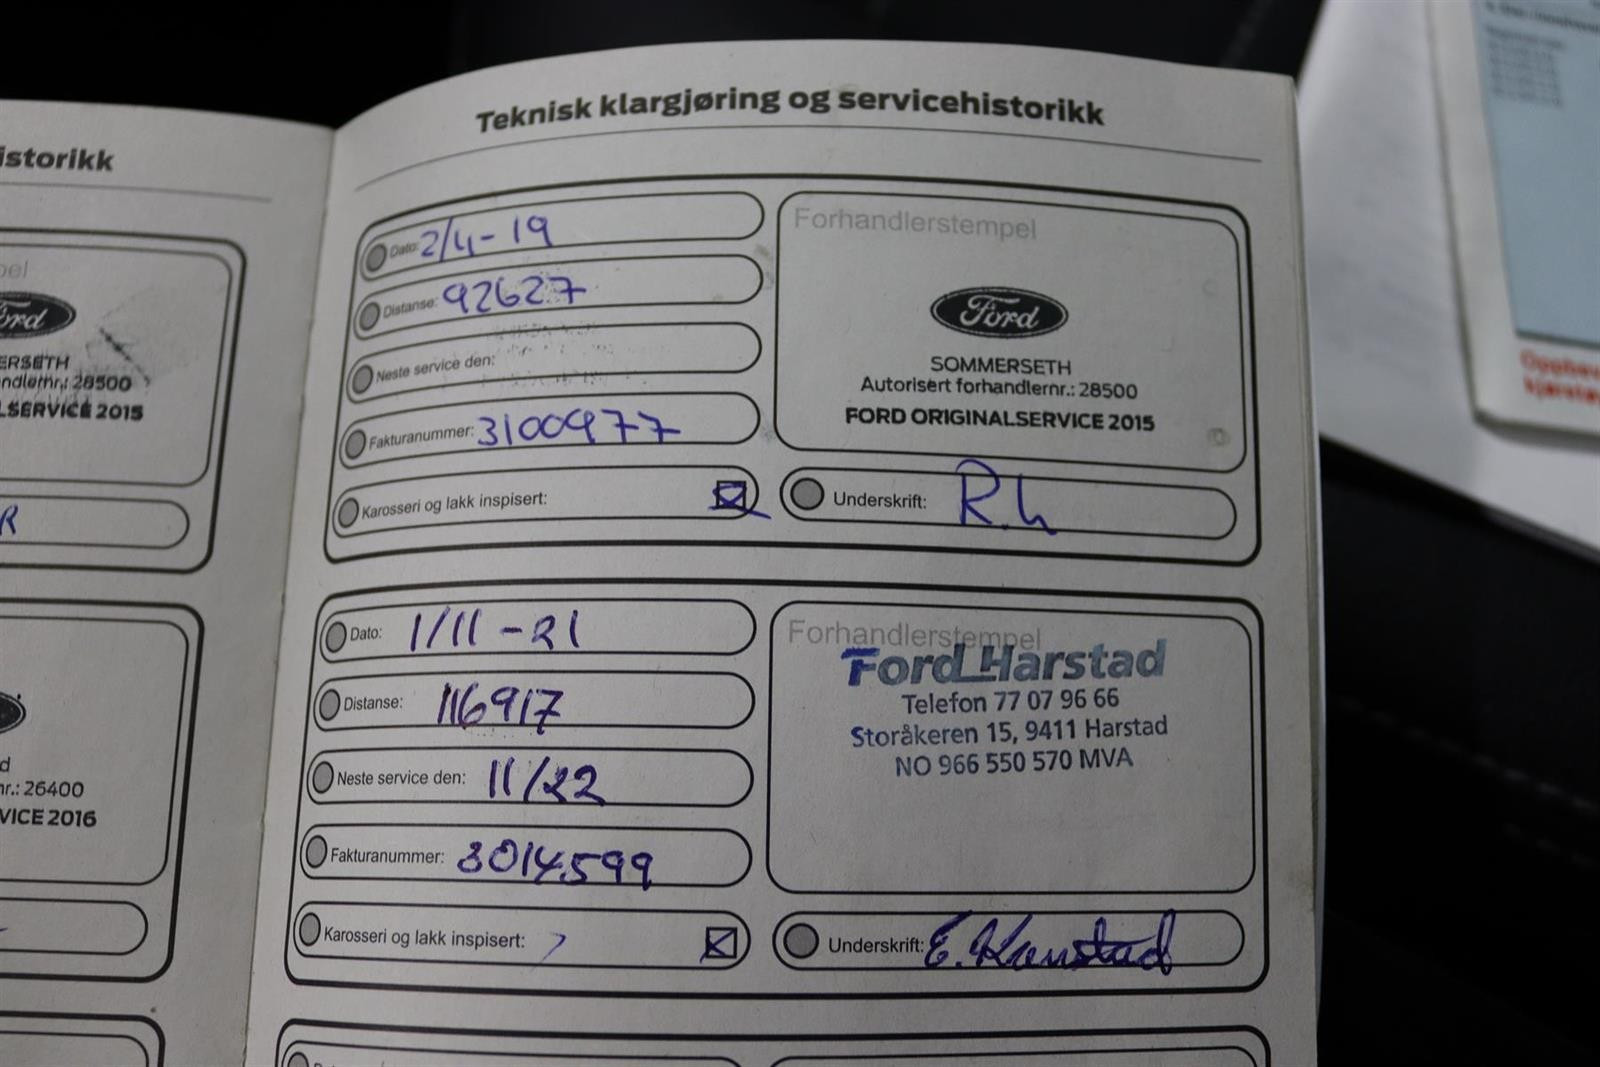 istorikk
pel
Ford
ERSETH
ndlernr.: 28500
LSERVICE 2015
R
d
nr.: 26400
VICE 2016
Teknisk klargjøring og servicehistorikk
Dato: 2/4-19
Distanse: 92627
Neste service den:
Fakturanummer: 3100977
Karosseri og lakk inspisert:
Forhandlerstempel
Ford
SOMMERSETH
Autorisert forhandlernr.: 28500
FORD ORIGINALSERVICE 2015
Underskrift: R.h
Dato: 1/11-21
Distanse: 116917
Neste service den: 11/22
Fakturanummer: 3014599
Karosseri og lakk inspisert:
Forhandlerstempel
Ford Harstad
Telefon 77 07 96 66
Storåkeren 15, 9411 Harstad
NO 966 550 570 MVA
Underskrift: E. Kanstad